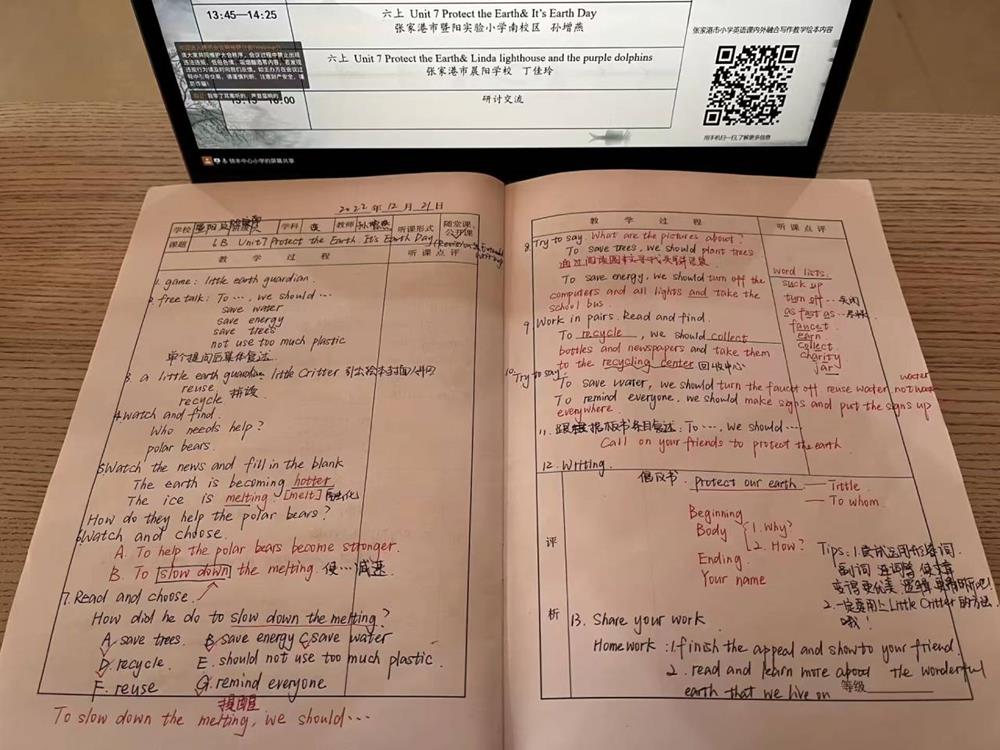 13:45—14:25
六上 Unit 7 Protect the Earth& It's Earth Day
张家港市暨阳实验小学南校区 孙增燕
六上 Unit 7 Protect the Earth& Linda lighthouse and the purple dolphins
张家港市晨阳学校 丁佳玲
研讨交流
张家港市小学英语课内外融合写作教学绘本内容
用手机扫一扫,了解更多信息
2022年12月21日
学校 暨阳实验 学科 英 教师 听课形式 随堂课、公开课
课题 6B Unit7 Protect the Earth. It's Earth Day
教学过程 听课点评
1. game: little earth guardian.
2. free talk: To ..., we should ...
save water
save energy
save trees
not use too much plastic
单个提问后集体复述
3. a little earth guardian. little Critter 引出绘本封面
reuse
recycle 拼读
4. Watch and find.
Who needs help?
polar bears.
5. Watch the news and fill in the blank
The earth is becoming hotter
The ice is melting. [melt] 融化
How do they help the polar bears?
6. Watch and choose.
A. To help the polar bears become stronger.
B. To slow down the melting. 使…减速
7. Read and choose.
How did he do to slow down the melting?
A. save trees. B. save energy C. save water
D. recycle. E. should not use too much plastic.
F. reuse G. remind everyone
提醒
To slow down the melting, we should ...
教学过程 听课点评
8. Try to say What are the pictures about?
To save trees, we should plant trees
To save energy, we should turn off the
computers and all lights and take the
school bus.
9. Work in pairs. Read and find.
To recycle, we should collect
bottles and newspapers and take them
to the recycling center 回收中心
10. Try to say
To save water, we should turn the faucet off reuse water not waste water
To remind everyone, we should make signs and put the signs up
everywhere.
word lists.
suck up
turn off … 关闭
as fast as …
faucet
earn
collect
charity
jar
11. 跟着板书条目复述: To ..., we should ...
Call on your friends to protect the earth
12. Writing.
倡议书. protect our earth — Tittle.
— To whom
Beginning
Body 1. Why?
2. How?
Ending
Your name
Tips: 1. 尝试运用形容词
副词 连词等 使文章
变得更优美 逻辑更清晰吧!
2. 一定要用上Little Critter的方法
哦!
评析
13. Share your work.
Homework: 1. finish the appeal and show to your friend.
2. read and learn more about the wonderful
earth that we live on
等级